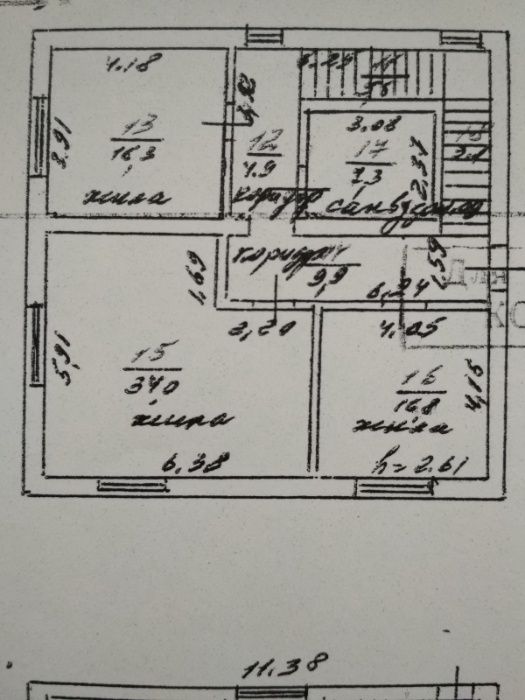 4.18
3.91
13
16.3
жила
12
4.9
коридор
3.08
17
7.3
2.37
санвузол
коридор
9,9
1,69
1.59
6.24
2,20
4.05
Для
КО
15
34.0
жила
5,91
16
16.8
жила
4,15
6,38
h=2.61
11.38